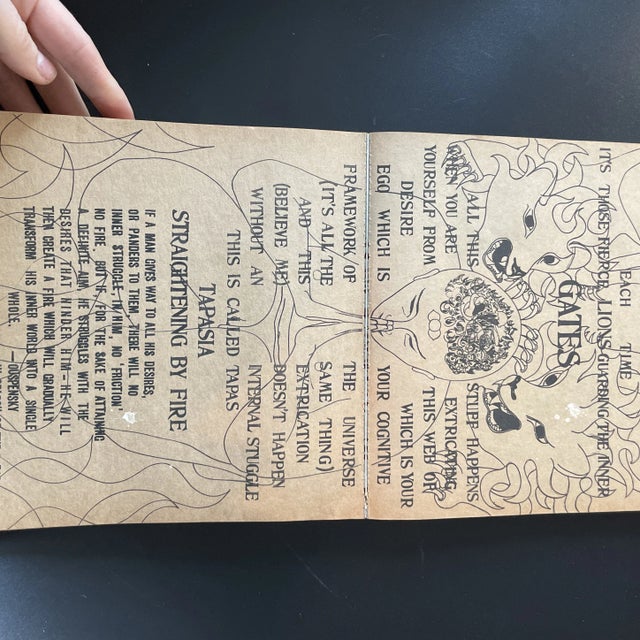 EACH TIME
IT'S THOSE FIERCE LIONS GUARDING THE INNER
GATES
ALL THIS STUFF HAPPENS
WHEN YOU ARE EXTRICATING
YOURSELF FROM THIS WEB OF
DESIRE WHICH IS YOUR
EGO WHICH IS YOUR COGNITIVE
FRAMEWORK OF THE UNIVERSE
(IT'S ALL THE SAME THING)
AND THIS EXTRICATION
(BELIEVE ME) DOESN'T HAPPEN
WITHOUT AN INTERNAL STUGGLE
THIS IS CALLED TAPAS
TAPASIA
STRAIGHTENING BY FIRE
IF A MAN GIVES WAY TO ALL HIS DESIRES,
OR PANDERS TO THEM, THERE WILL NO
INNER STRUGGLE IN HIM, NO 'FRICTION',
NO FIRE. BUT IF, FOR THE SAKE OF ATTAINING
A DEFINITE AIM, HE STRUGGLES WITH THE
DESIRES THAT HINDER HIM—HE WILL
THEN CREATE A FIRE WHICH WILL GRADUALLY
TRANSFORM HIS INNER WORLD INTO A SINGLE
WHOLE. —OUSPENSKY